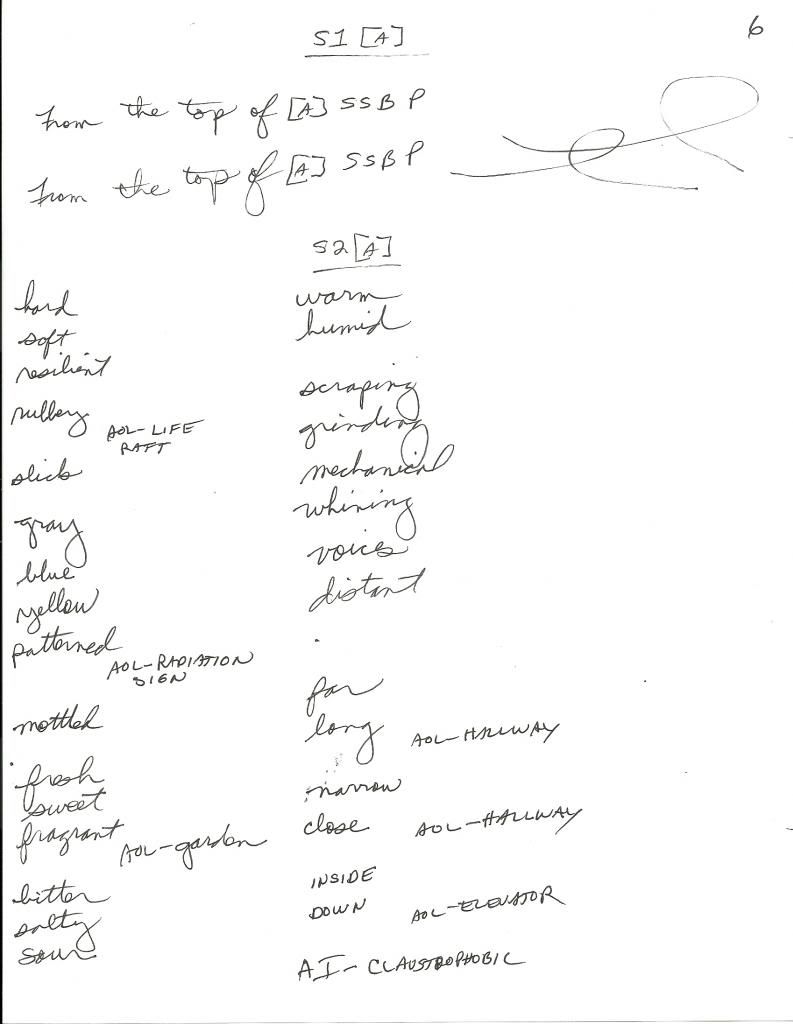 6
S1 [A]
From the top of [A] SSBP
From the top of [A] SSBP
S2 [A]
hard
soft
resilient
rubbery
AOL-LIFE
RAFT
slick
gray
blue
yellow
patterned
AOL-RADIATION
SIGN
mottled
fresh
sweet
fragrant AOL-garden
bitter
salty
sour
warm
humid
scraping
grinding
mechanical
whining
voices
distant
far
long AOL-HALLWAY
narrow
close AOL-HALLWAY
INSIDE
DOWN AOL-ELEVATOR
AI-CLAUSTROPHOBIC